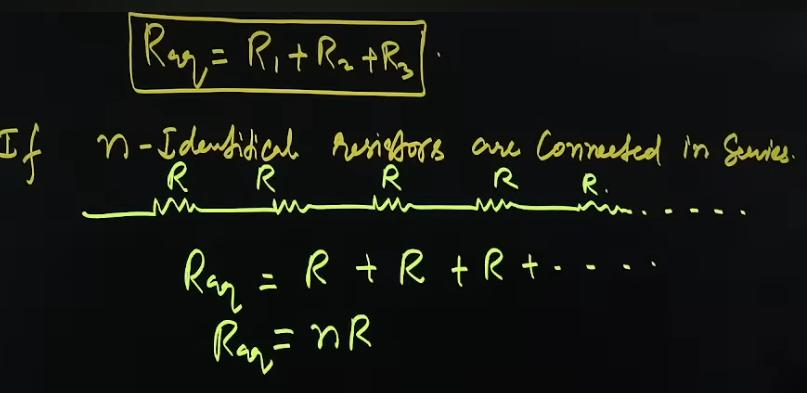 Req = R₁ + R₂ + R₃
If n-Identitical resistors are Connected in Series.
R R R R R.
Req = R + R + R + - - - -
Req = nR